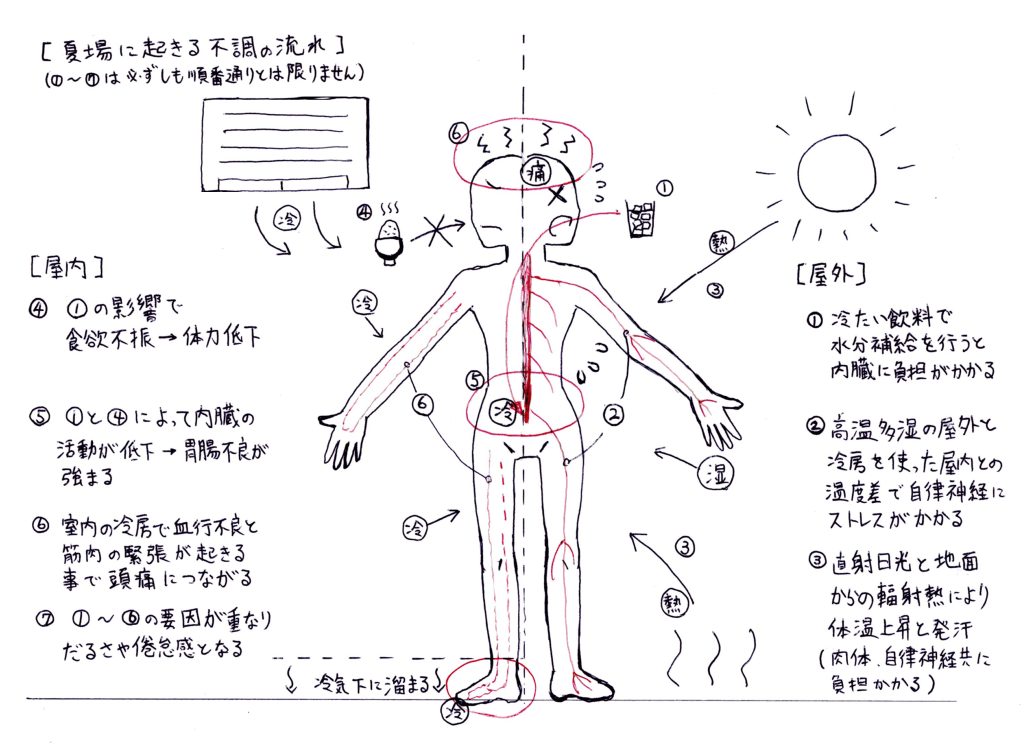 [ 夏場に起きる不調の流れ ]
(①～⑦は必ずしも順番通りとは限りません)
[屋内]
④ ①の影響で
食欲不振→体力低下
⑤ ①と④によって内臓の
活動が低下→胃腸不良が
強まる
⑥ 室内の冷房で血行不良と
筋肉の緊張が起きる
事で頭痛につながる
⑦ ①～⑥の要因が重なり
だるさや倦怠感となる
冷
④
冷
⑥
痛
①
熱
③
⑤
冷
⑥
②
湿
冷
③
熱
冷気下に溜まる
冷
[屋外]
① 冷たい飲料で
水分補給を行うと
内臓に負担がかかる
② 高温多湿の屋外と
冷房を使った屋内との
温度差で自律神経に
ストレスがかかる
③ 直射日光と地面
からの輻射熱により
体温上昇と発汗
(肉体、自律神経共に
負担かかる)